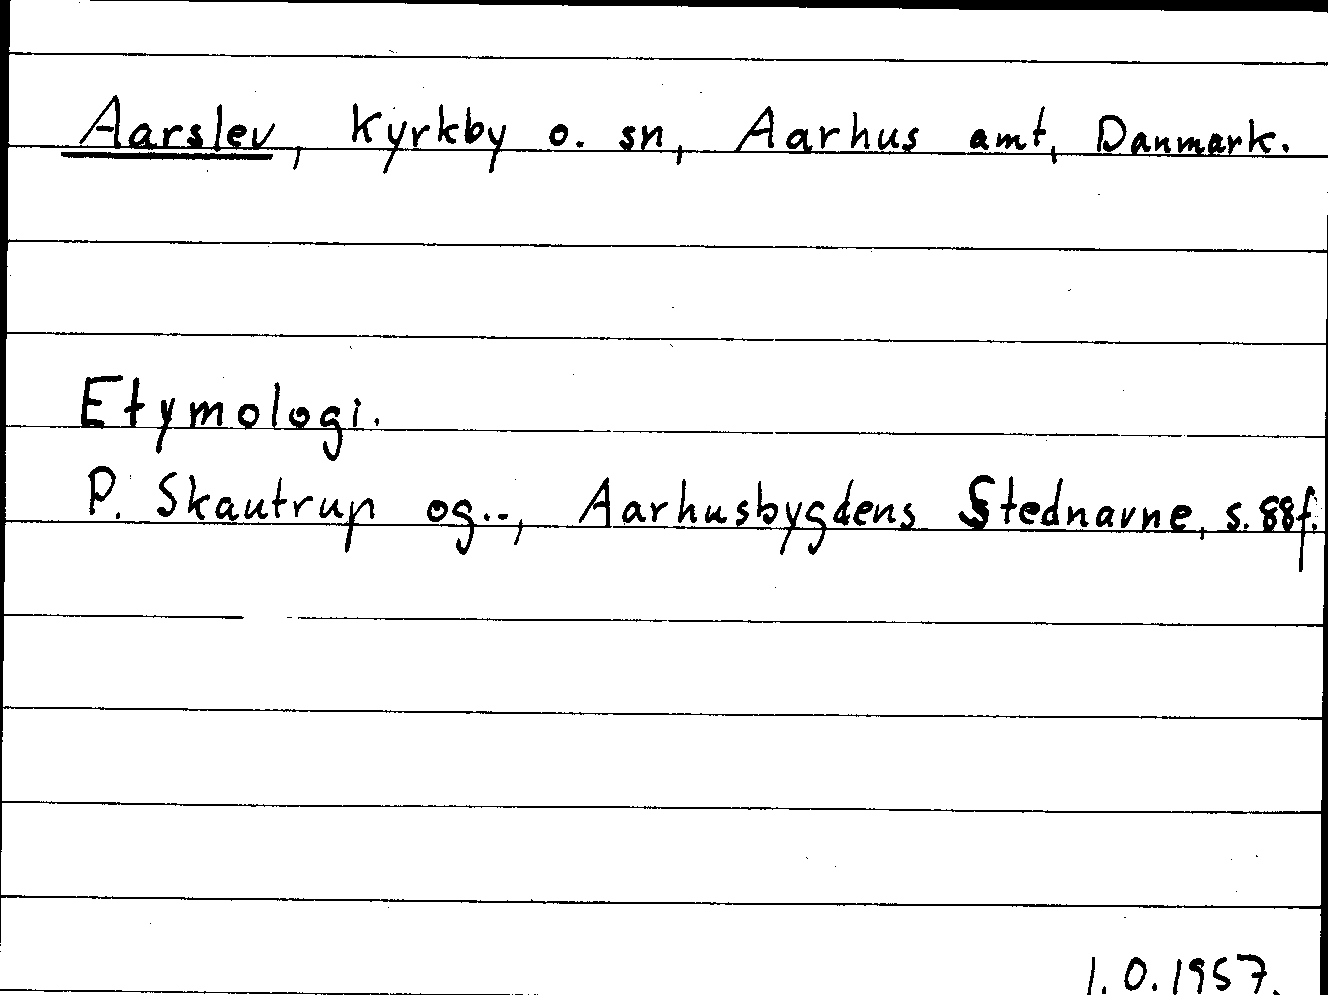 Aarslev, Kyrkby o. sn, Aarhus amt, Danmark.
Etymologi.
P. Skautrup og.., Aarhusbygdens Stednavne, s. 88f.
1.0.1957.